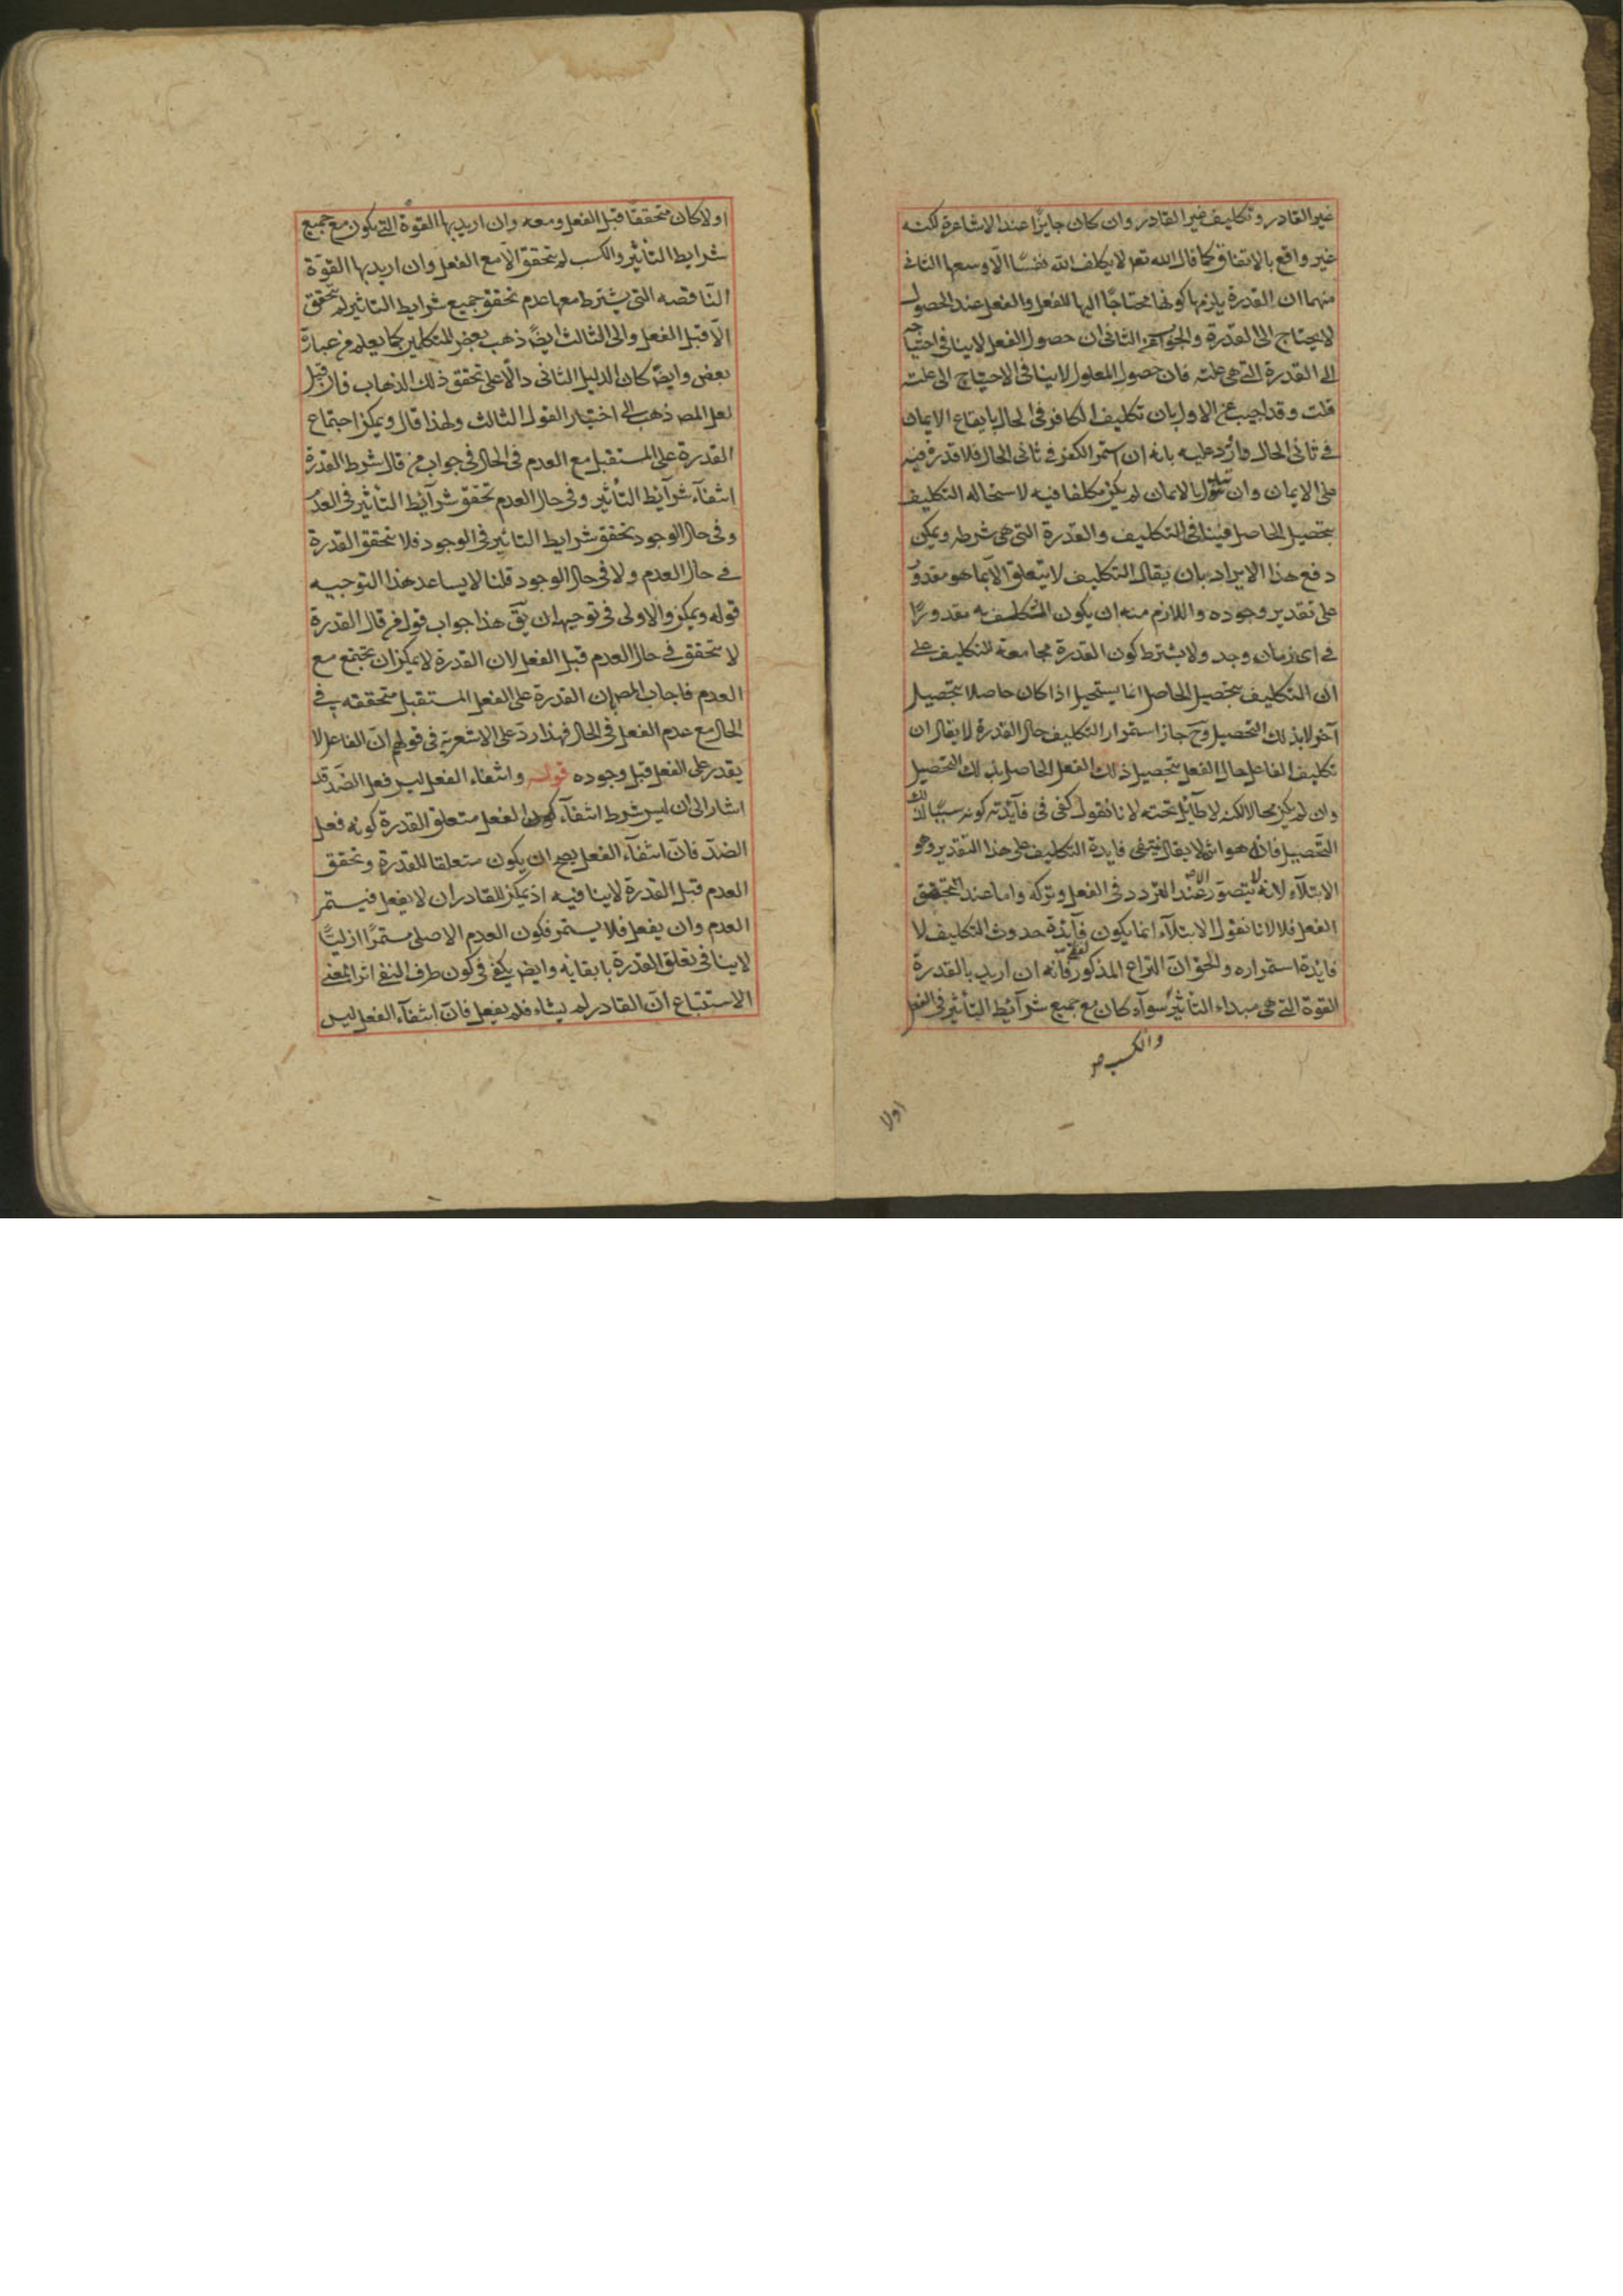 غير القادر وتكليف غير القادر وان كان جايزا عند الاشاعرة لكنه
غير واقع بالاتفاق كما قال الله تعر لا يكلف الله نفسًا الّا وسعها الثانى
منهما ان القدرة يلزمها كونها محتاجًا اليها للفعل والفعل عند الحصول
لا يحتاج الى القدرة والجواب عن الثانى ان حصول الفعل لا ينافى احتياجه
الى القدرة التى هى علته فان حصول المعلول لا ينافى الاحتياج الى علته
قلت وقد اجيب عن الاول بان تكليف الكافر فى الحال بايقاع الايمان
فى ثانى الحال واُرد عليه بانه ان استمر الكفر فى ثانى الحال فلا قدرة فيه
على الايمان وان تبدّل بالايمان لم يكن مكلفا فيه لاستحالة التكليف
بتحصيل الحاصل فينافى التكليف والقدرة التى هى شرطه ويمكن
دفع هذا الايراد بان يقال التكليف لا يتعلق الّا بما هو مقدور
على تقدير وجوده واللازم منه ان يكون المكلف به مقدورًا
فى اى زمان وجد ولا يشترط كون القدرة مجامعة للتكليف على
ان التكليف بتحصيل الحاصل انما يستحيل اذا كان حاصلا بتحصيل
آخر لا بذلك التحصيل وح جاز استمرار التكليف حال القدرة لا يقال ان
تكليف الفاعل حال الفعل بتحصيل ذلك الفعل الحاصل بذلك التحصيل
وان لم يكن محالا لكنه لا طائل تحته لانا نقول كفى فى فآئدته كونه سببًا لذلك
التحصيل فانه هو اثره لا يقال ينتفى فايدة التكليف على هذا التقدير وهو
الابتلآء لانه لا يتصوّر الّا عند التردد فى الفعل وتركه واما عند تحقق
الفعل فلا لانا نقول الابتلآء انما يكون فآئدة حدوث التكليف لا
فائدة استمراره والحق ان النزاع المذكور لفظى فانه ان اريد بالقدرة
القوة التى هى مبداء التأثير سوآء كان مع جميع شرآئط التأثير فى الفعل
والكسب صح
اولا
اولا كان متحققًا قبل الفعل ومعه وان اريد بها القوة التى يكون مع جميع
شرايط التأثير والكسب لم يتحقق الّا مع الفعل وان اريد بها القوّة
النّاقصه التى يشترط معها عدم تحقق جميع شرايط التاثير لم يتحقق
الّا قبل الفعل والى الثالث ايضً ذهب بعض المتكلمين كما يعلم من عبارة
بعض وايضً كان الدليل الثانى دالّا على تحقق ذلك الذهاب فان قيل
لعل المص ذهب الى اختيار القول الثالث ولهذا قال ويمكن اجتماع
القدرة على المستقبل مع العدم فى الحال فى جواب من قال شرط القدرة
انتفآء شرآئط التأثير وفى حال العدم تحقق شرآئط التأثير فى العدم
وفى حال الوجود تحقق شرايط التاثير فى الوجود فلا تتحقق القدرة
فى حال العدم ولا فى حال الوجود قلنا لا يساعد هذا التوجيه
قوله ويمكن والاولى فى توجيهه ان يقَ هذا جواب قول من قال القدرة
لا تتحقق فى حال العدم قبل الفعل لان القدرة لا يمكن ان تجتمع مع
العدم فاجاب المص بان القدرة على الفعل المستقبل متحققه فى
الحال مع عدم الفعل فى الحال فهذا ردّ على الاشعرية فى قولهم انّ الفاعل لا
يقدر على الفعل قبل وجوده قوله وانتفاء الفعل ليس فعل الضدّ قد
اشار الى ان ليس شرط انتفآء كون الفعل متعلق القدرة كونه فعل
الضدّ فانّ انتفآء الفعل يصح ان يكون متعلقا للقدرة وتحقق
العدم قبل القدرة لا ينافيه اذ يمكن للقادر ان لا يفعل فيستمر
العدم وان يفعل فلا يستمر فكون العدم الاصلى مستمرًا ازليًّا
لا ينافى تعلق القدرة بابقائه وايضً يكفى فى كون طرف النفى اثرا بمعنى
الاستتباع انّ القادر لم يشاء فلم يفعل فانّ انتفآء الفعل ليس